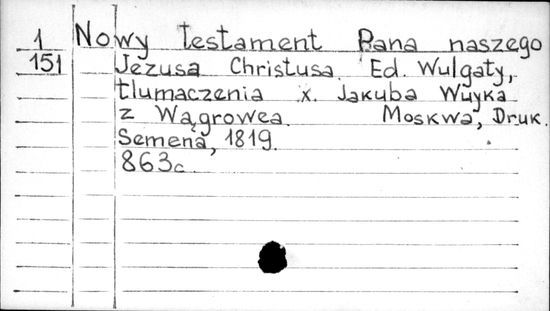 1 Nowy Testament Pana naszego
151 Jezusa Christusa. Ed. Wulgaty,
tlumaczenia x. Jakuba Wuyka
z Wągrowca. Moskwa, Druk.
Semena, 1819.
863c.